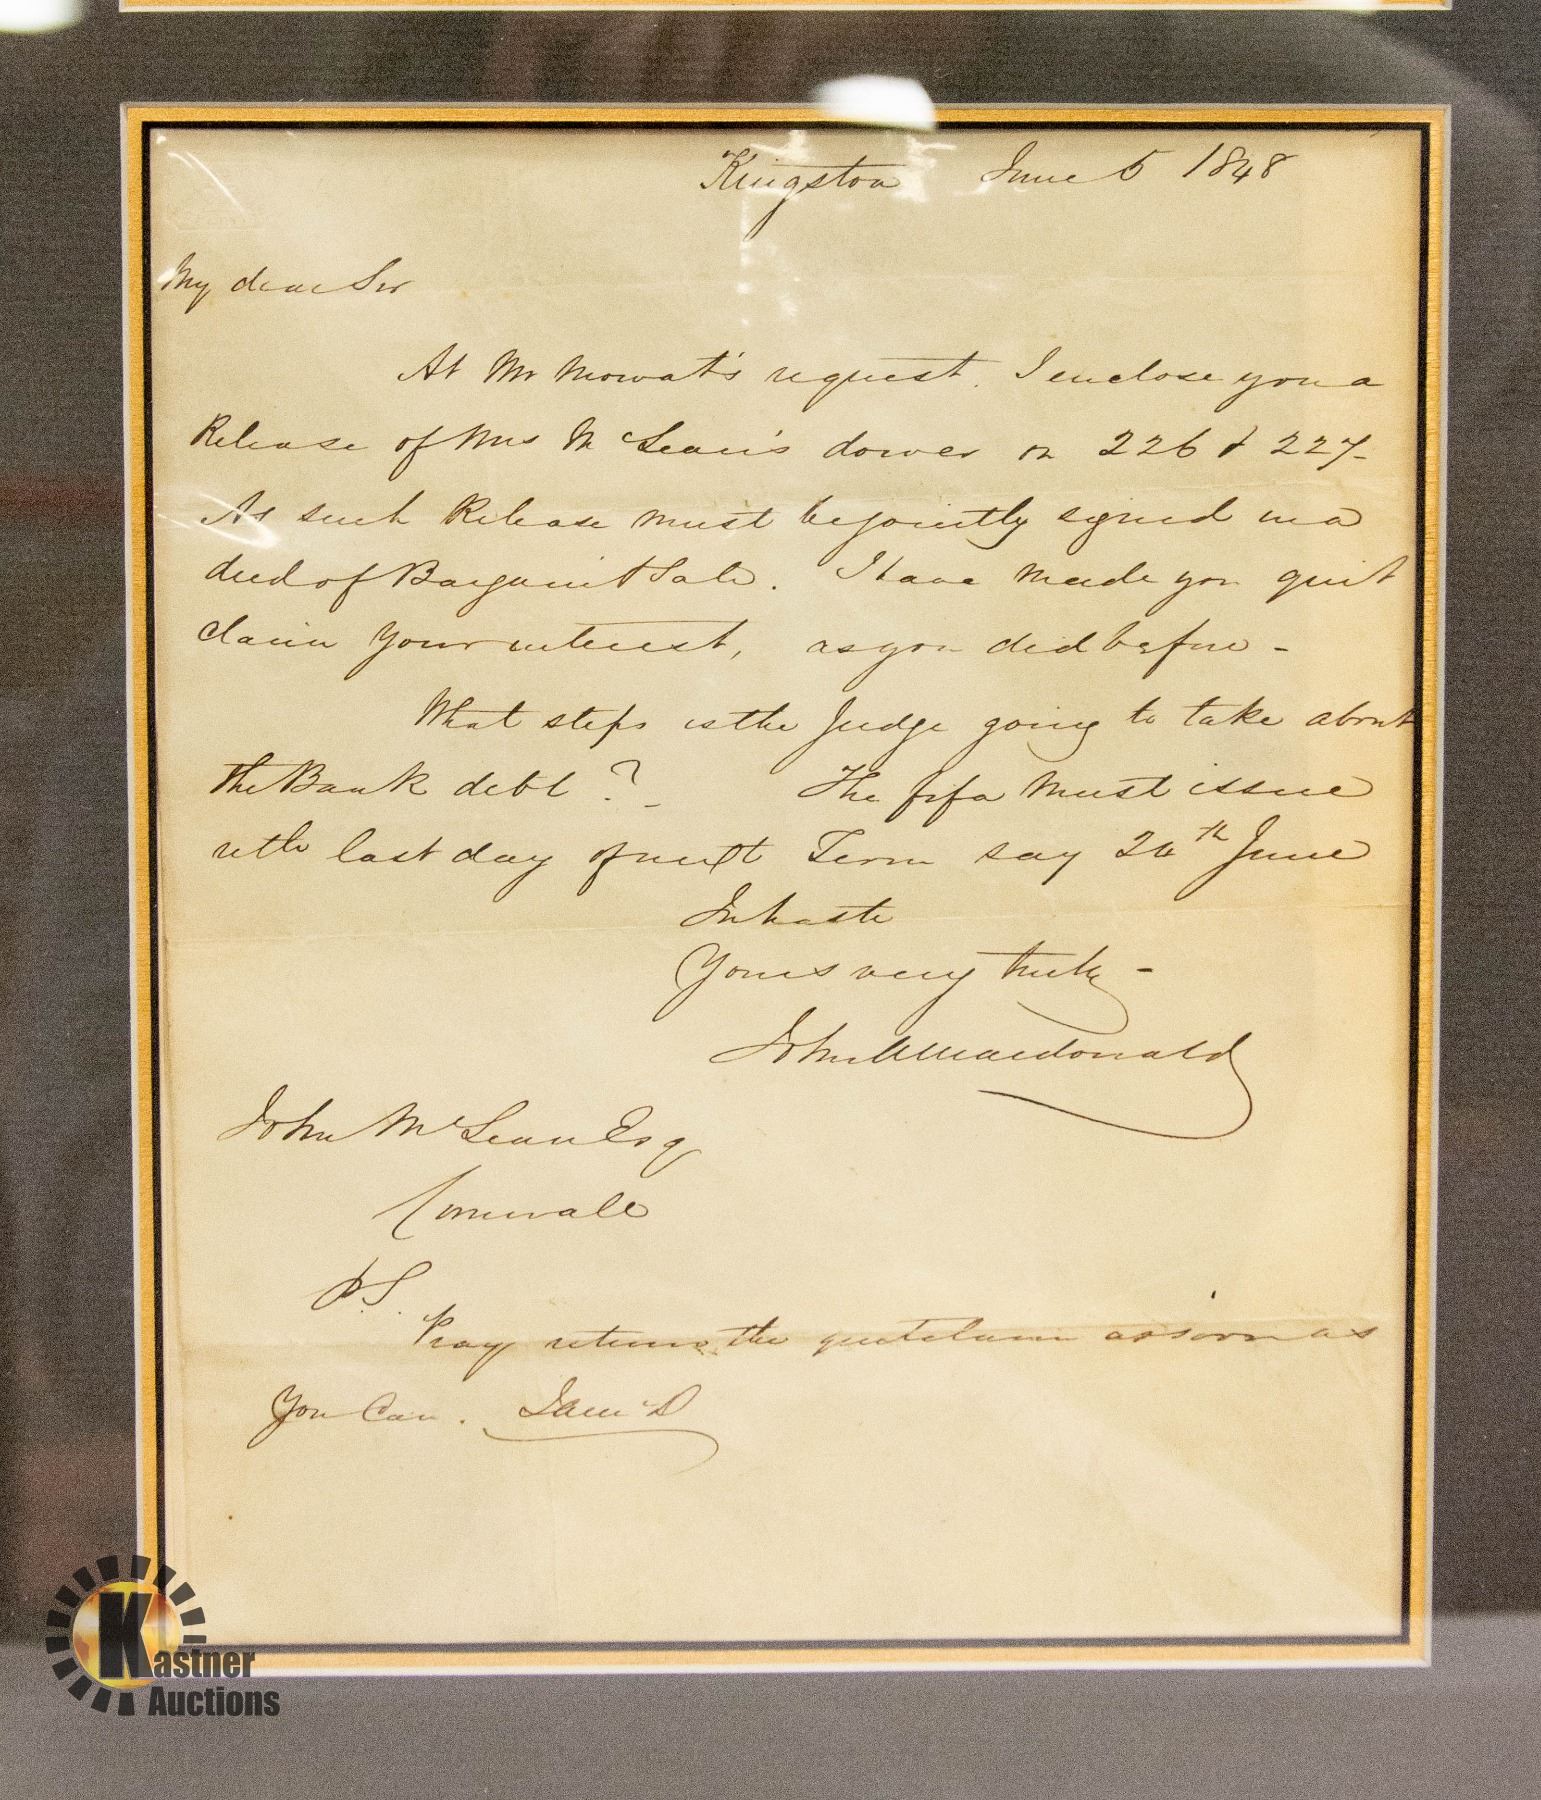 Kingston June 5 1848
My dear Sir
At Mr Mowat's request. I enclose you a
Release of Mrs McLean's dower on 226 & 227–
As such Release must be jointly signed in a
deed of Bargain & Sale. I have made you quit
claim your interest, as you did before –
What steps is the Judge going to take about
the Bank debt ? – The fifa must issue
on the last day of next Term say 24th June
In haste
Yours very truly –
John A Macdonald
John McLean Esq
Cornwall
P.S.
Pray return the quitclaim as soon as
You Can.
Kastner
Auctions